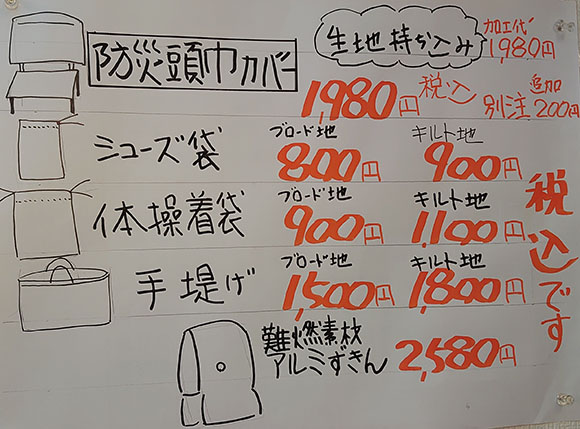 防災頭巾カバー
生地持ち込み 加工代 1,980円
1,980円 税込 追加 別注200円
シューズ袋 ブロード地 800円 キルト地 900円
体操着袋 ブロード地 900円 キルト地 1,100円
手堤げ ブロード地 1,500円 キルト地 1,800円
難燃素材
アルミずきん 2,580円
税込です